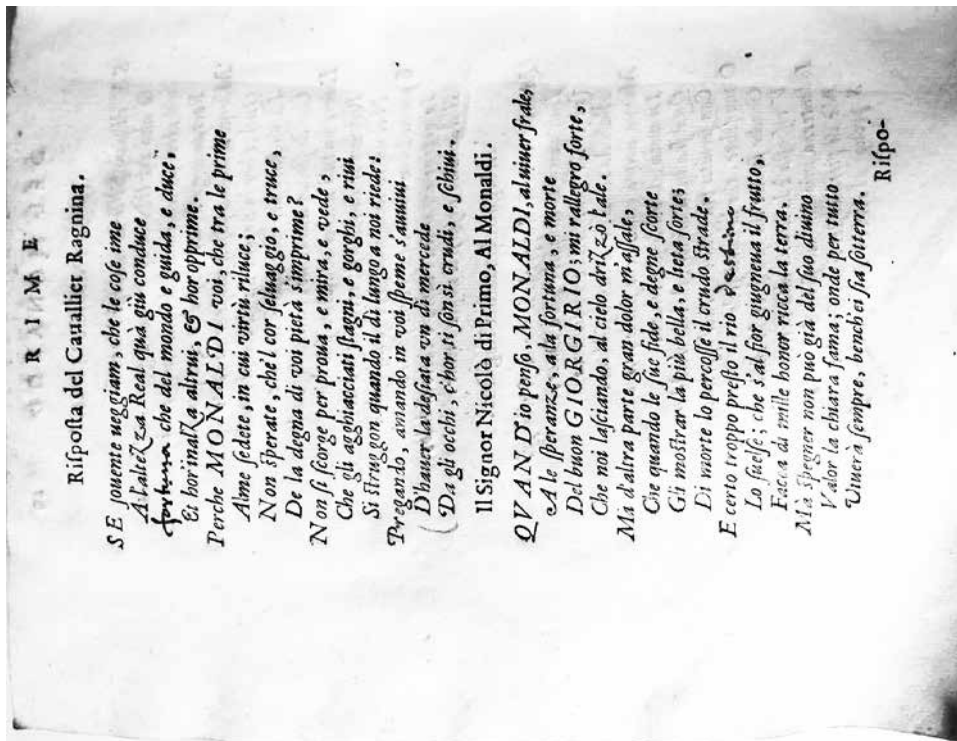 RIME
Risposta del Cauallier Ragnina.
SE souente ueggiam, che le cose ime
A l'alteZza Real quà giù conduce
fortuna che del mondo e guida, e duce,
Et hor inalZa altrui, & hor opprime.
Perche MONALDI voi, che tra le prime
Alme sedete, in cui virtù riluce;
Non sperate, che'l cor seluaggio, e truce,
De la degna di voi pietà s'imprime?
Non si scorge per proua, e mira, e vede,
Che gli agghiacciati stagni, e gorghi, e riui
Si struggon quando il dì lungo a noi riede:
Pregando, amando in voi speme s'auuiui
D'hauer la desiata vn dì mercede
Da gli occhi, c'hor ti sonsi crudi, e schiui.
Il Signor Nicolò di Primo, Al Monaldi.
QVAND'io penso, MONALDI, al uiuer frale,
A le speranze, a la fortuna, e morte
Del buon GIORGIRIO; mi rallegro forte,
Che noi lasciando, al cielo driZzò l'ale.
Ma d'altra parte gran dolor m'assale,
Che quando le sue fide, e degne scorte
Gli mostrar la più bella, e lieta sorte;
Di morte lo percosse il crudo strade.
E certo troppo presto il rio destino
Lo suelse; che s'al fior giugneua il frutto,
Facea di mille honor ricca la terra.
Ma spegner non può già del suo diuino
Valor la chiara fama; onde per tutto
Viuerà sempre, bench'ei sia sotterra.
Rispo-